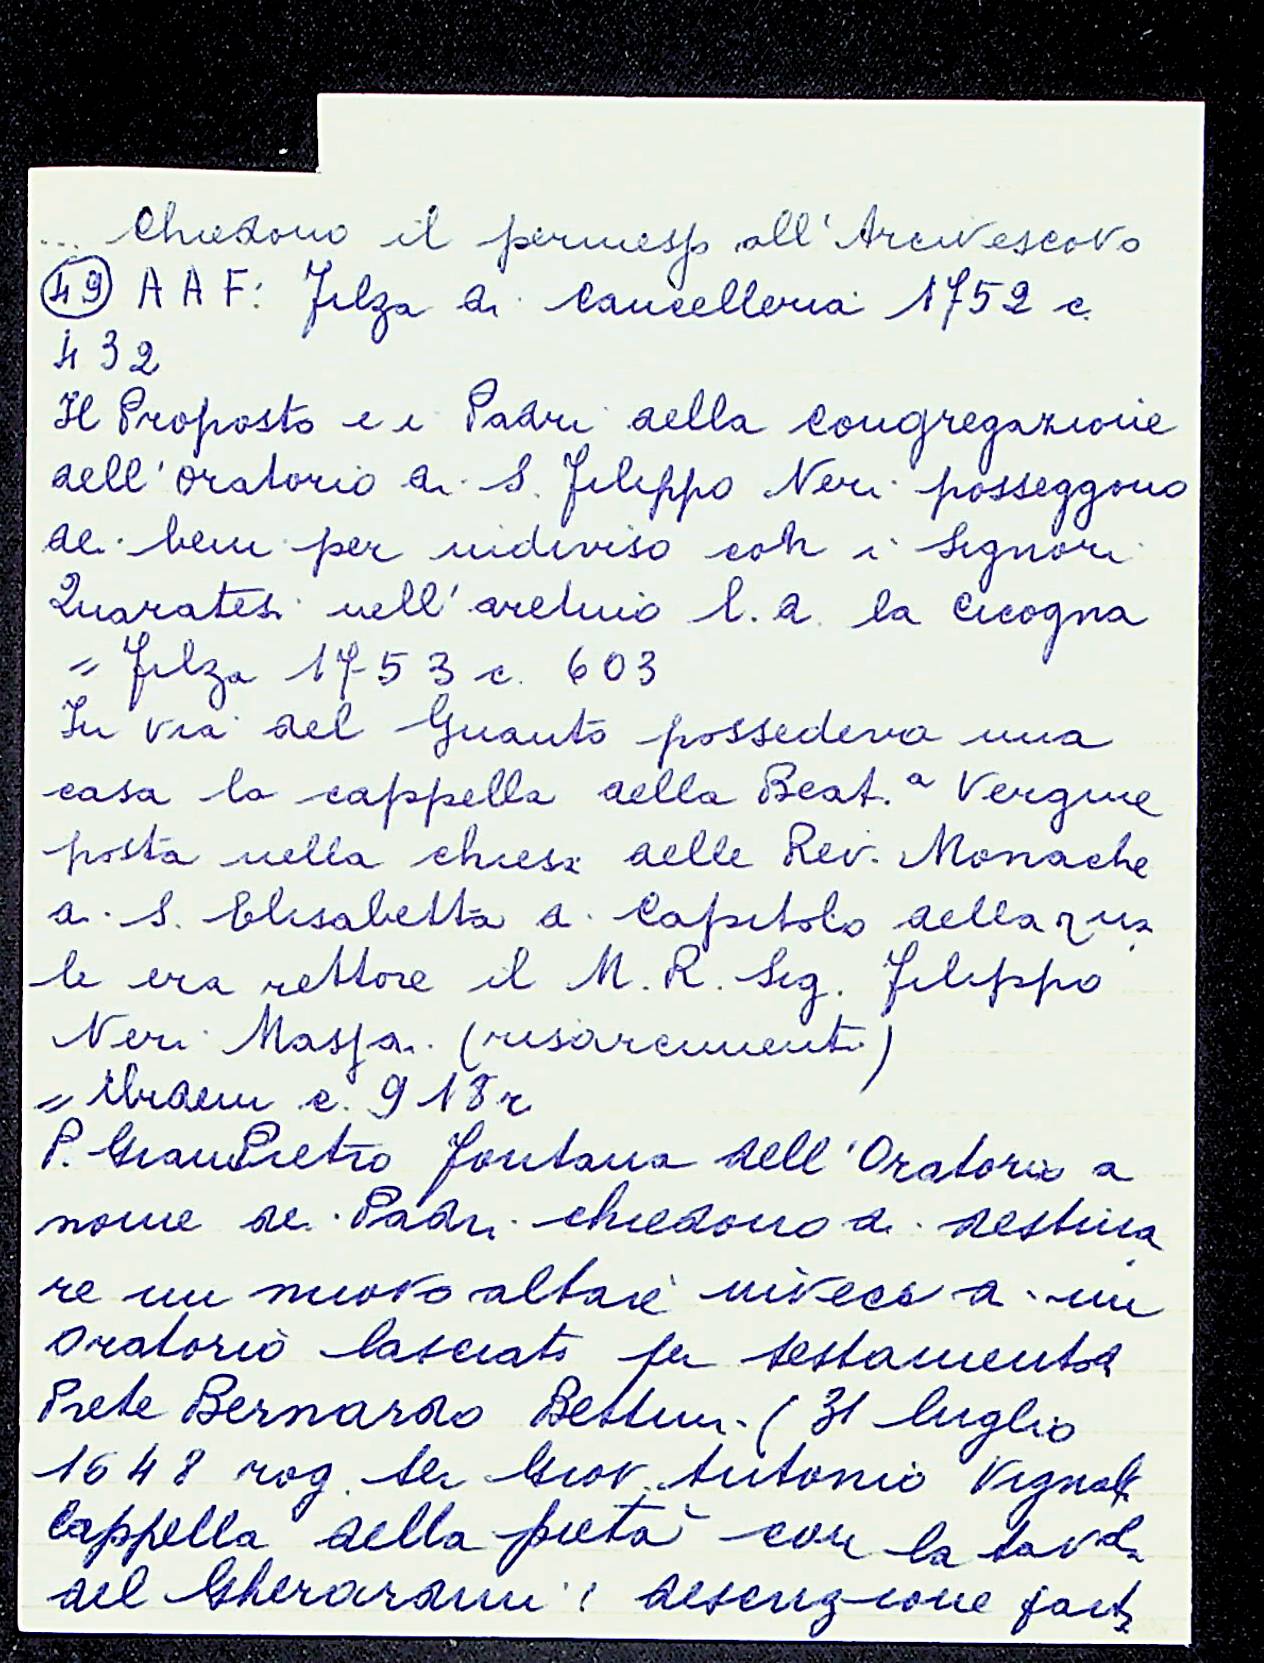 ... Chiedono il permesso all'Arcivescovo
49 A A F: Filza di Cancelleria 1752 c.
432
Il Proposto e i Padri della Congregazione
dell'Oratorio di S. Filippo Neri posseggono
dei beni per indiviso con i Signori
Quaratesi nell'archivio l. d. la Cicogna
= Filza 1753 c. 603
In via del Guanto possedeva una
casa la cappella della Beat.a Vergine
posta nella chiesa delle Rev. Monache
di S. Elisabetta di Capitolo della qua
le era rettore il M. R. Sig. Filippo
Neri (risarcimenti)
= Ibidem c. 918 r
P. Gian Pietro Fontana dell'Oratorio a
nome dei Padri chiedono di destina
re un nuovo altare invece di un
Oratorio lasciato per testamento d
Prete Bernardo Bettini (31 luglio
1648 rog. Ser Giov. Antonio Vignali
Cappella della pietà con la tavola
del Gherardini: descrizione fatta